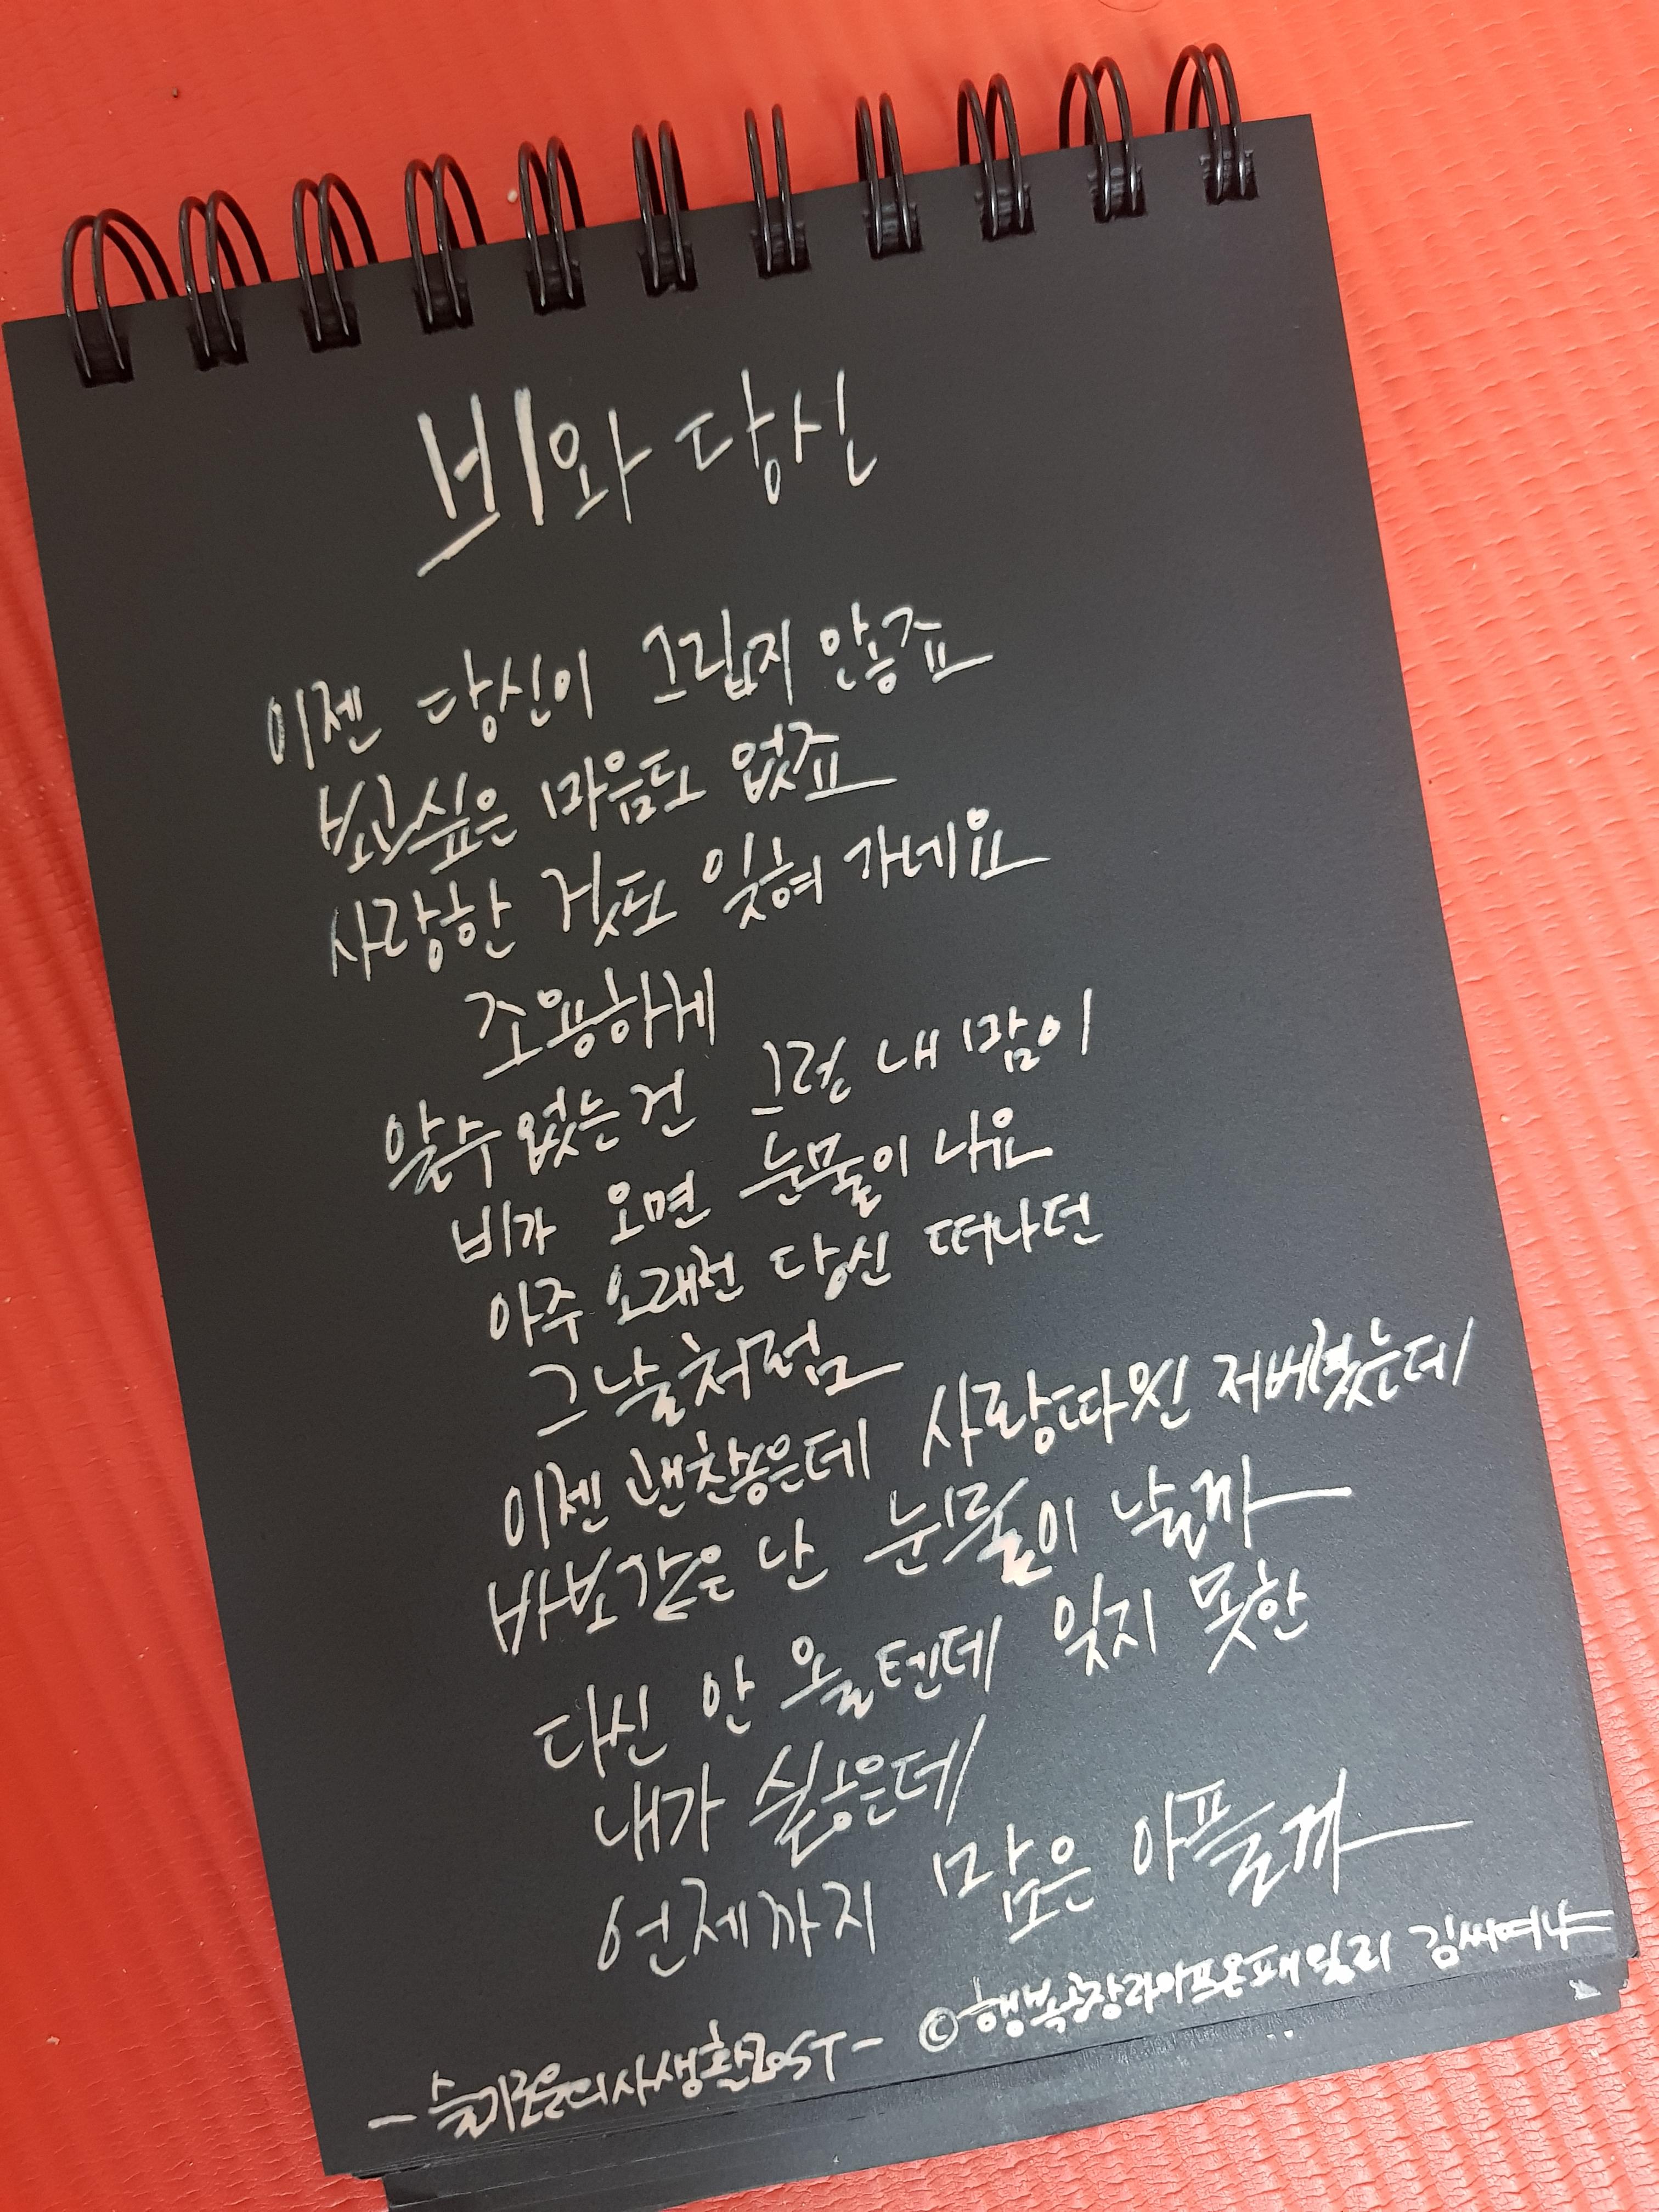 비와 당신
이젠 당신이 그립지 않죠
보고싶은 마음도 없죠
사랑한 것도 잊혀 가네요
조용하게
알수 없는 건 그런 내 맘이
비가 오면 눈물이 나요
아주 오래전 당신 떠나던
그날처럼
이젠 괜찮은데 사랑따윈 저버렸는데
바보같은 난 눈물이 날까
다신 안 올텐데 잊지 못한
내가 싫은데
언제까지 맘은 아플까
-슬기로운의사생활OST- ©행복공장라이프온패밀리 김씨여나